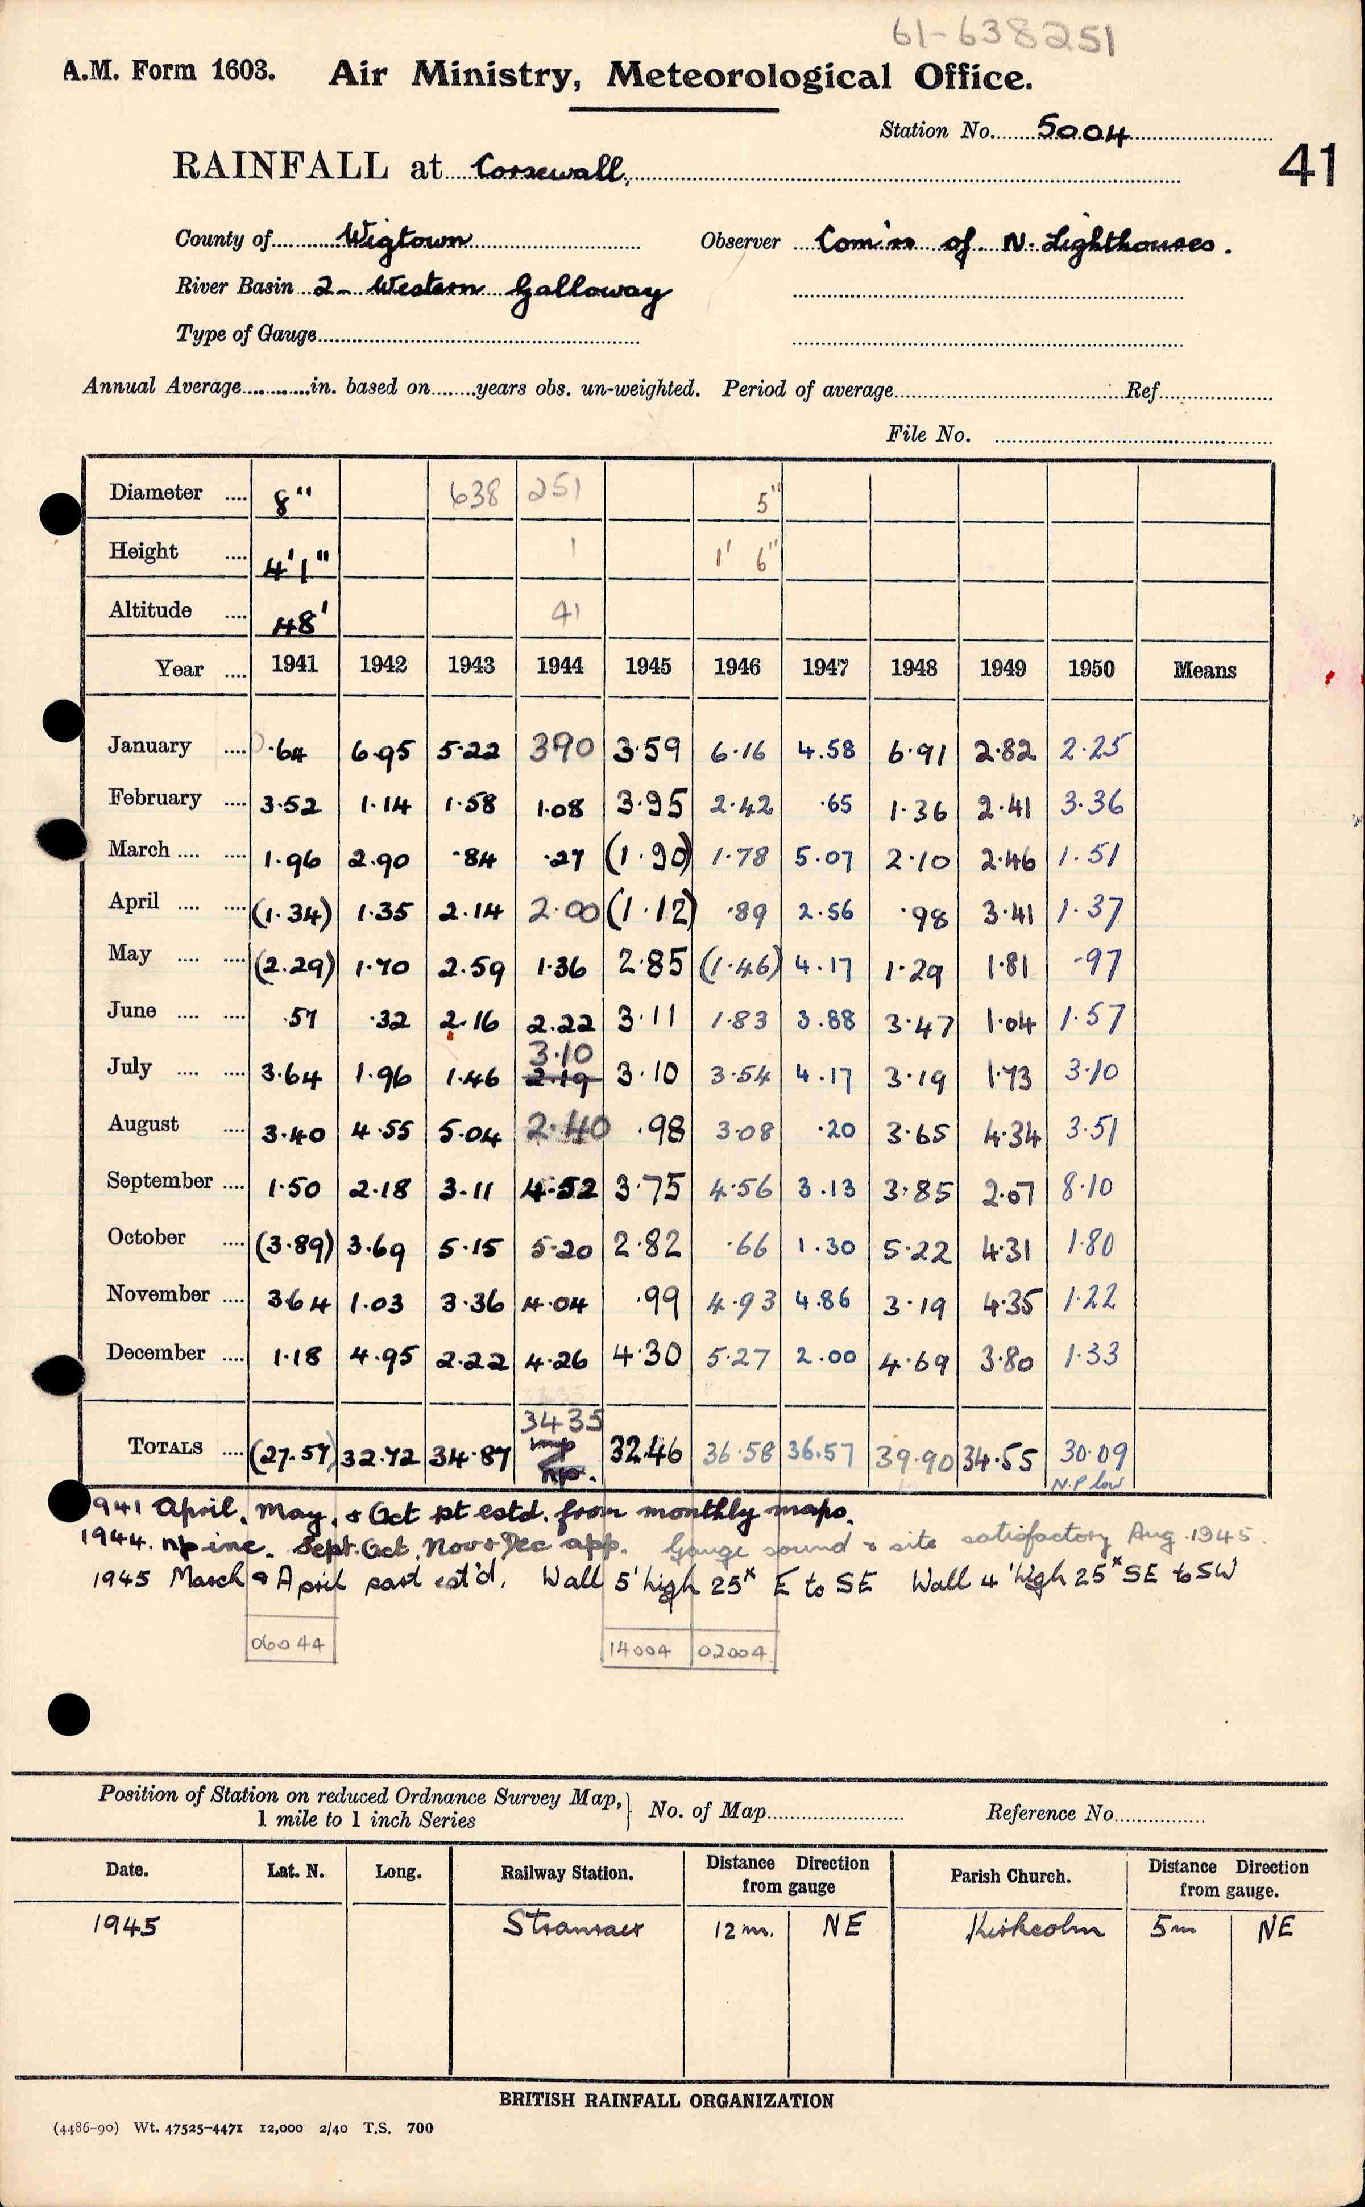 61-638251
A.M. Form 1603. Air Ministry, Meteorological Office.
Station No. 5004
41
RAINFALL at Corsewall.
County of Wigtown Observer Com'rs of N. Lighthouses.
River Basin 2- Western Galloway
Type of Gauge
Annual Average in. based on years obs. un-weighted. Period of average Ref
File No.
Diameter 8" 638 251 5"
Height 4'1" 1 1' 6"
Altitude 48' 41
Year 1941 1942 1943 1944 1945 1946 1947 1948 1949 1950 Means
January .64 6.95 5.22 390 3.59 6.16 4.58 6.91 2.82 2.25
February 3.52 1.14 1.58 1.08 3.95 2.42 .65 1.36 2.41 3.36
March 1.96 2.90 .84 .27 (1.90) 1.78 5.07 2.10 2.46 1.51
April (1.34) 1.35 2.14 2.00 (1.12) .89 2.56 .98 3.41 1.37
May (2.29) 1.70 2.59 1.36 2.85 (1.46) 4.17 1.29 1.81 .97
June .57 .32 2.16 2.22 3.11 1.83 3.88 3.47 1.04 1.57
3.10
July 3.64 1.96 1.46 2.19 3.10 3.54 4.17 3.19 1.73 3.10
August 3.40 4.55 5.04 2.40 .98 3.08 .20 3.65 4.34 3.51
September 1.50 2.18 3.11 4.52 3.75 4.56 3.13 3.85 2.07 8.10
October (3.89) 3.69 5.15 5.20 2.82 .66 1.30 5.22 4.31 1.80
November 3.64 1.03 3.36 4.04 .99 4.93 4.86 3.19 4.35 1.22
December 1.18 4.95 2.22 4.26 4.30 5.27 2.00 4.69 3.80 1.33
3435
TOTALS (27.57) 32.72 34.87 32.46 36.58 36.57 39.90 34.55 30.09
np. N.P low
1941 April, May, & Oct pt estd. from monthly maps.
1944. np inc. Sept. Oct, Nov & Dec app. Gauge sound & site satisfactory Aug. 1945.
1945 March & April part est'd. Wall 5' high 25ˣ E to SE Wall 4' high 25ˣ SE to SW
06044 14004 02004
Position of Station on reduced Ordnance Survey Map, } No. of Map Reference No.
1 mile to 1 inch Series
Date. Lat. N. Long. Railway Station. Distance Direction from gauge Parish Church. Distance Direction from gauge.
1945 Stranraer 12 m. NE Kirkcolm 5m NE
BRITISH RAINFALL ORGANIZATION
(4486-90) Wt. 47525-4471 12,000 2/40 T.S. 700